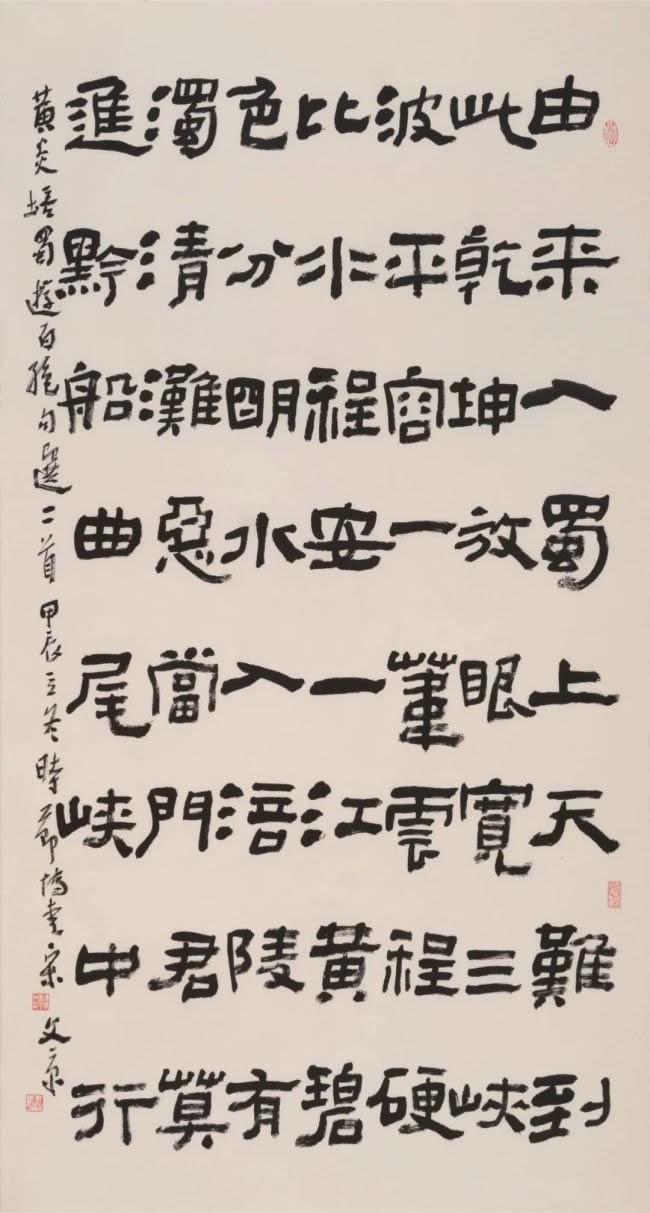 由来入蜀上天難到
此乾坤放眼寬三峽
波平容一葦雲程硬
比水程安一江黄碧
色分明水入涪陵有
濁清灘惡當門君莫
進黔船曲尾峽中行
黄炎培蜀遊百絶句選二首 甲辰立冬時節 書 宋文京